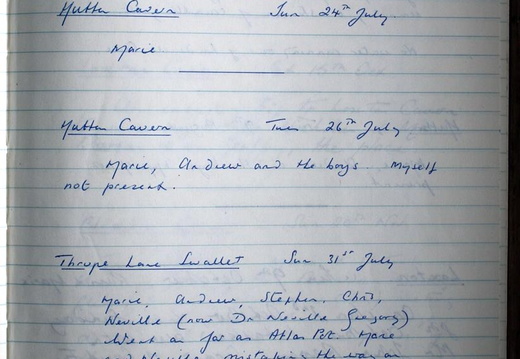 Hutton Cavern Sun 24th July
Marie
Hutton Cavern Tues 26th July
Marie, Andrew and the boys. Myself
not present.
Thrupe Lane Swallet Sun 31st July
Marie, Andrew, Stephen, Chris,
Neville (now Dr Neville Gregory)
Went as far as Atlas Pot. Marie
and Neville mistaking the way on